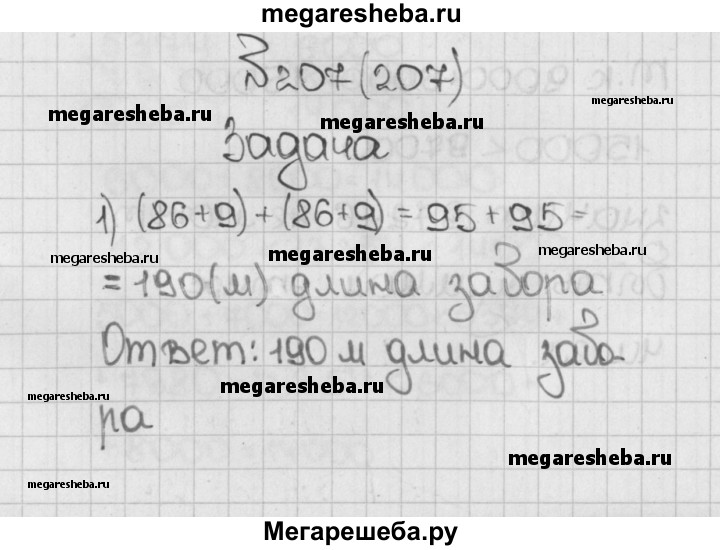 megaresheba.ru
№207(207)
megaresheba.ru
megaresheba.ru
megaresheba.ru
Задача
1) (86+9)+(86+9)=95+95=
megaresheba.ru
megaresheba.ru
megaresheba.ru
=190(м) длина забора
Ответ: 190 м длина забо
megaresheba.ru
megaresheba.ru
ра
megaresheba.ru
megaresheba.ru
Мегарешеба.ру